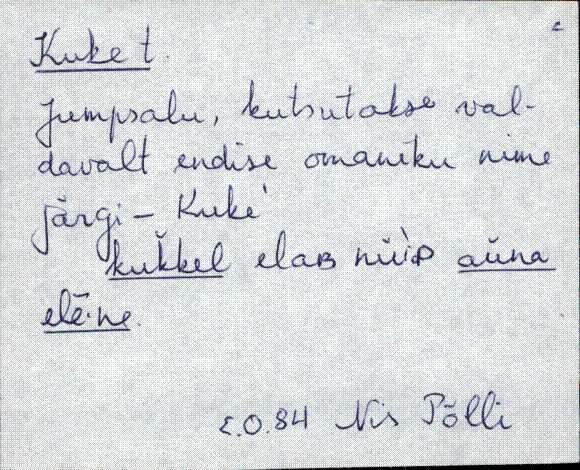 Kuke t.
Jumpsalu, kutsutakse val-
davalt endise omaniku nime
järgi – Kuke`
kuk̆kel elaʙ nüìᴅ aŭna
elē·ne.
E.O.84 Nis Põlli